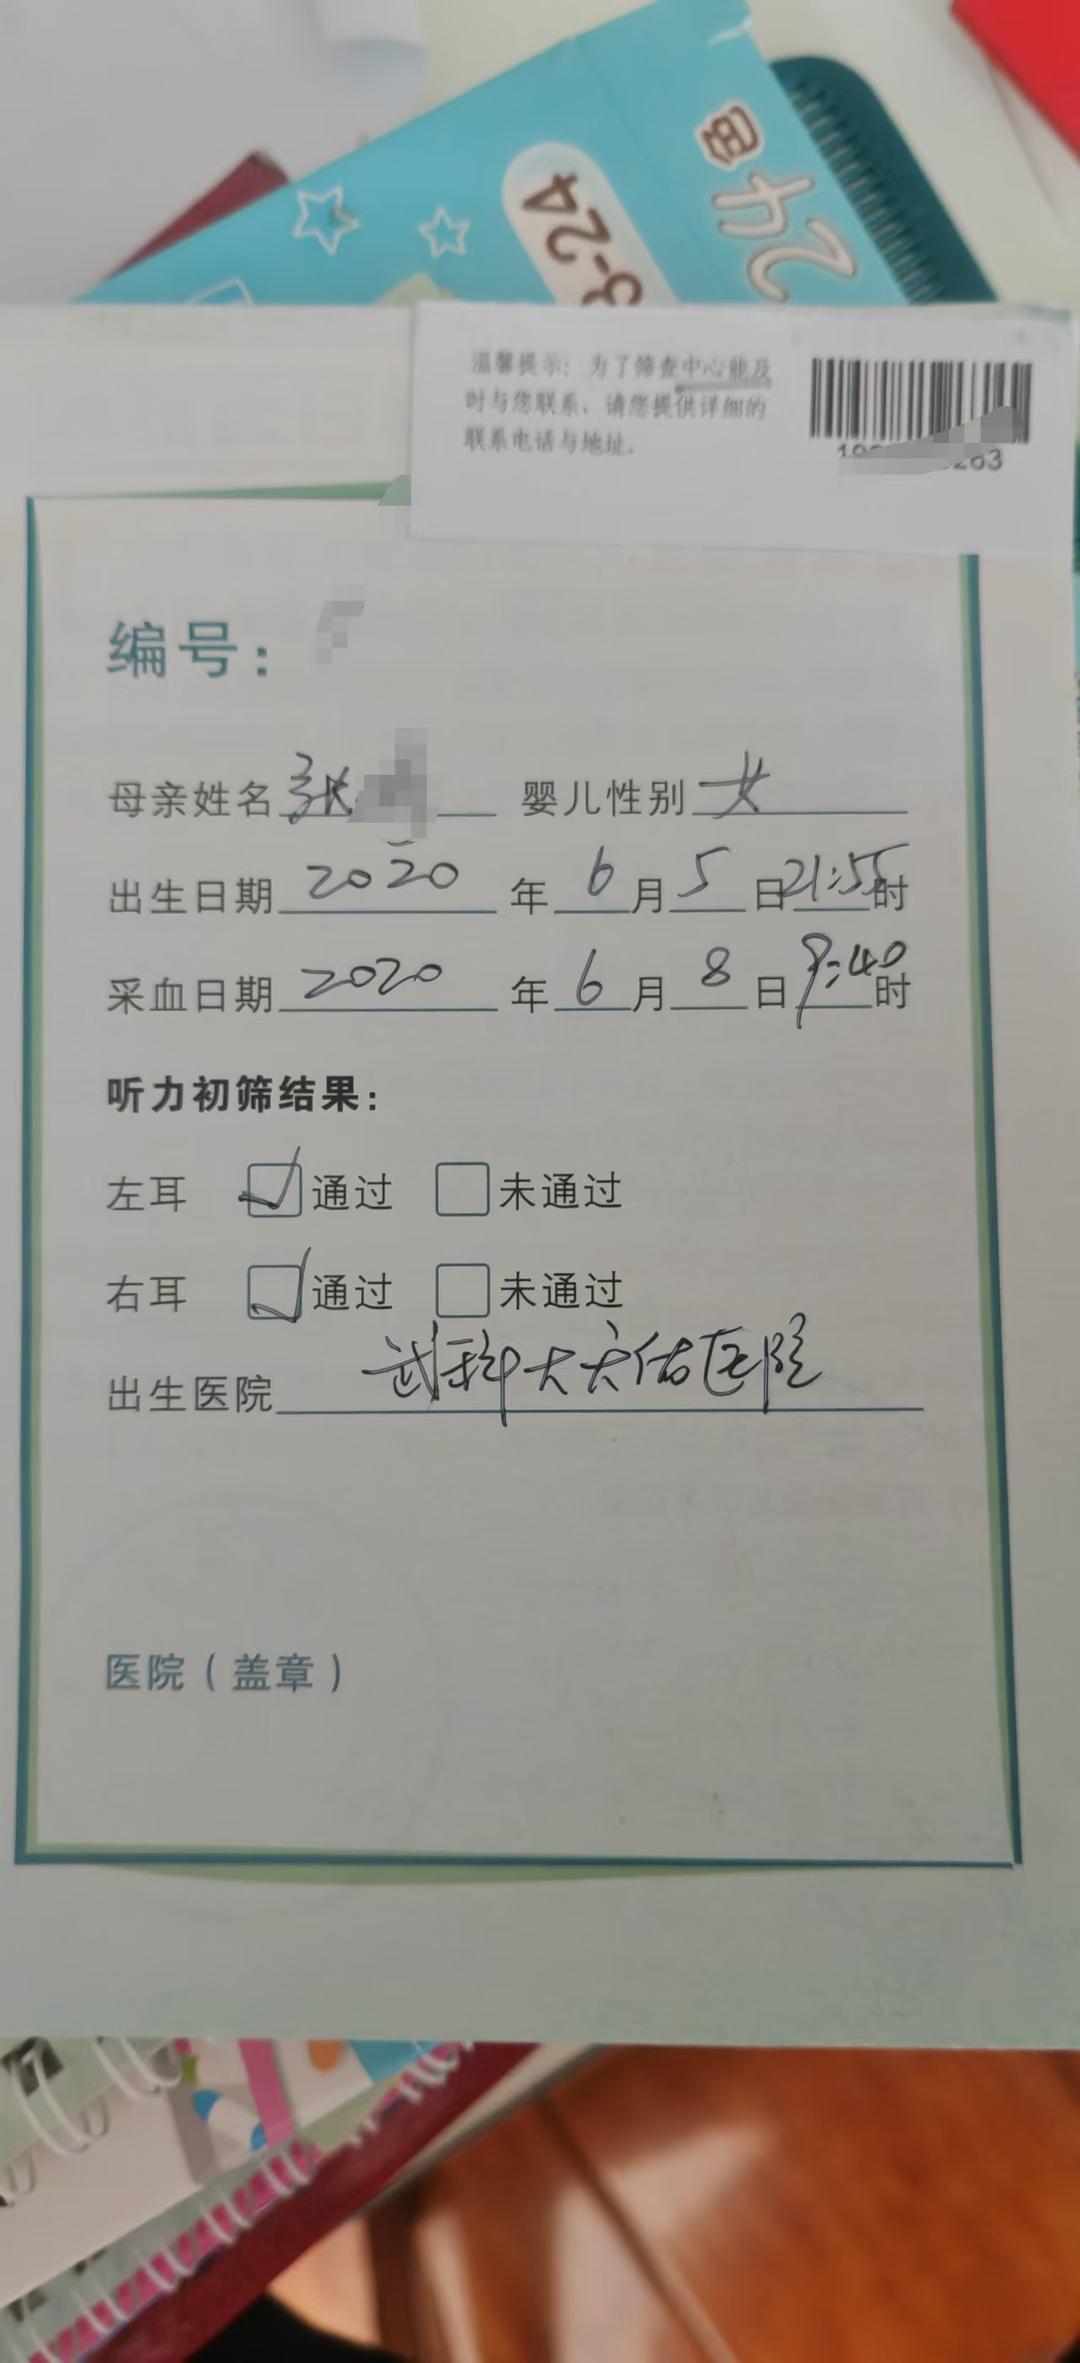 3-24
温馨提示：为了筛查中心能及
时与您联系，请您提供详细的
联系电话与地址.
编号：
母亲姓名 张 婴儿性别 女
出生日期 2020 年 6 月 5 日 21:55 时
采血日期 2020 年 6 月 8 日 9:40 时
听力初筛结果：
左耳 通过 未通过
右耳 通过 未通过
出生医院 武科大天佑医院
医院（盖章）